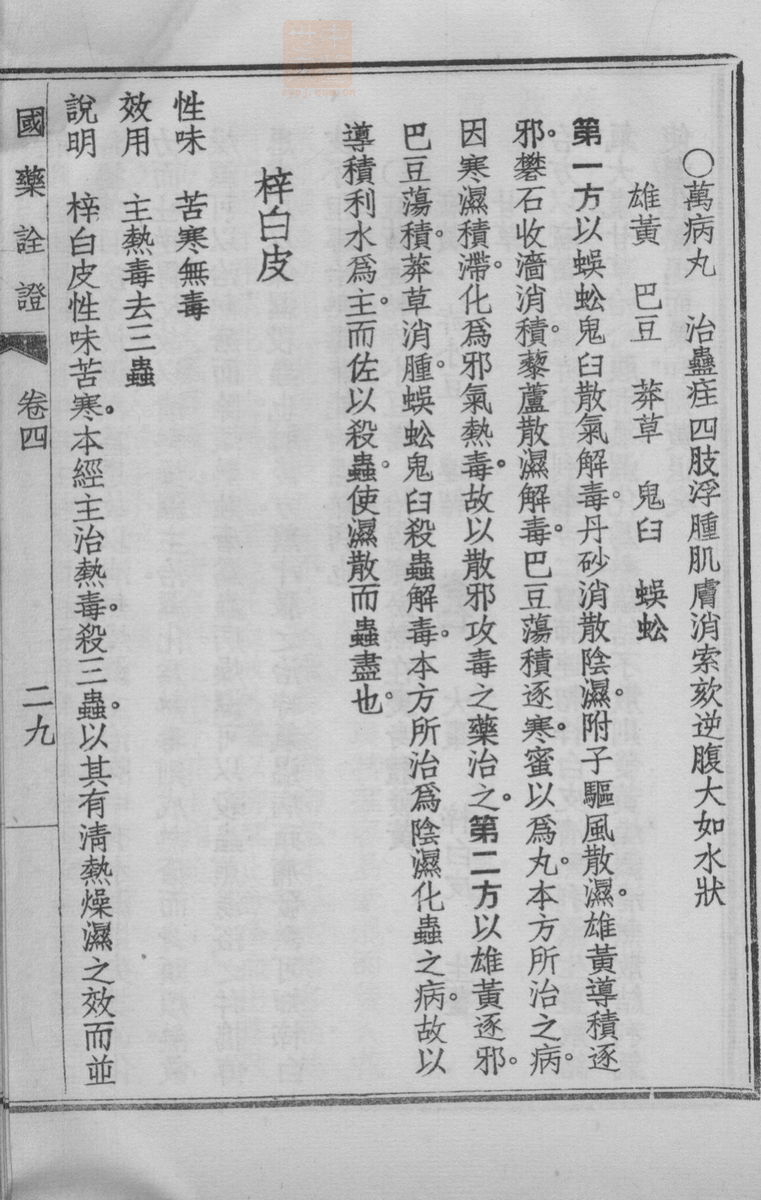 ○萬病丸　治蠱疰四肢浮腫肌膚消索欬逆腹大如水狀
雄黃　巴豆　莽草　鬼臼　蜈蚣
第一方以蜈蚣鬼臼散氣解毒。丹砂消散陰濕。附子驅風散濕。雄黃導積逐
邪。礬石收濇消積。藜蘆散濕解毒。巴豆蕩積逐寒。蜜以爲丸。本方所治之病。
因寒濕積滯。化爲邪氣熱毒。故以散邪攻毒之藥治之。第二方以雄黃逐邪。
巴豆蕩積。莽草消腫。蜈蚣鬼臼殺蟲解毒。本方所治爲陰濕化蟲之病。故以
導積利水爲主。而佐以殺蟲。使濕散而蟲盡也。
梓白皮
性味　苦寒無毒
效用　主熱毒去三蟲
說明　梓白皮性味苦寒。本經主治熱毒。殺三蟲。以其有淸熱燥濕之效而並
國藥詮證　卷四　二九